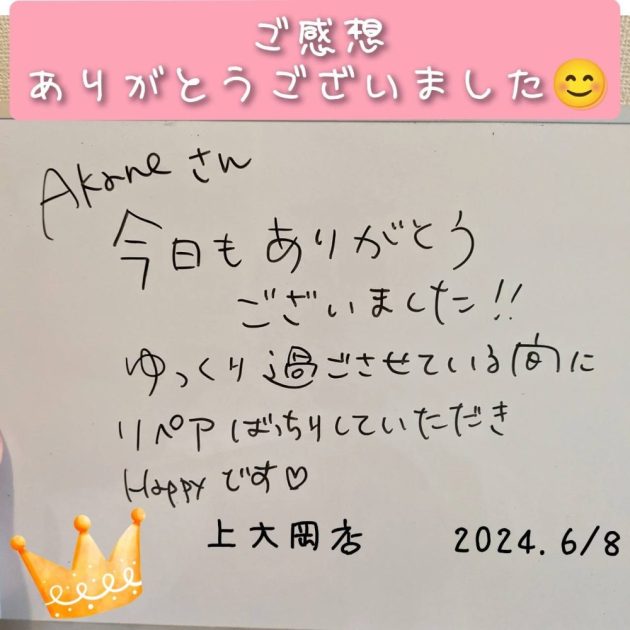 ご感想
ありがとうございました😊
Akane さん
今日もありがとう
ございました!!
ゆっくり過ごさせている間に
リペアばっちりしていただき
Happyです♡
上大岡店 2024.6/8